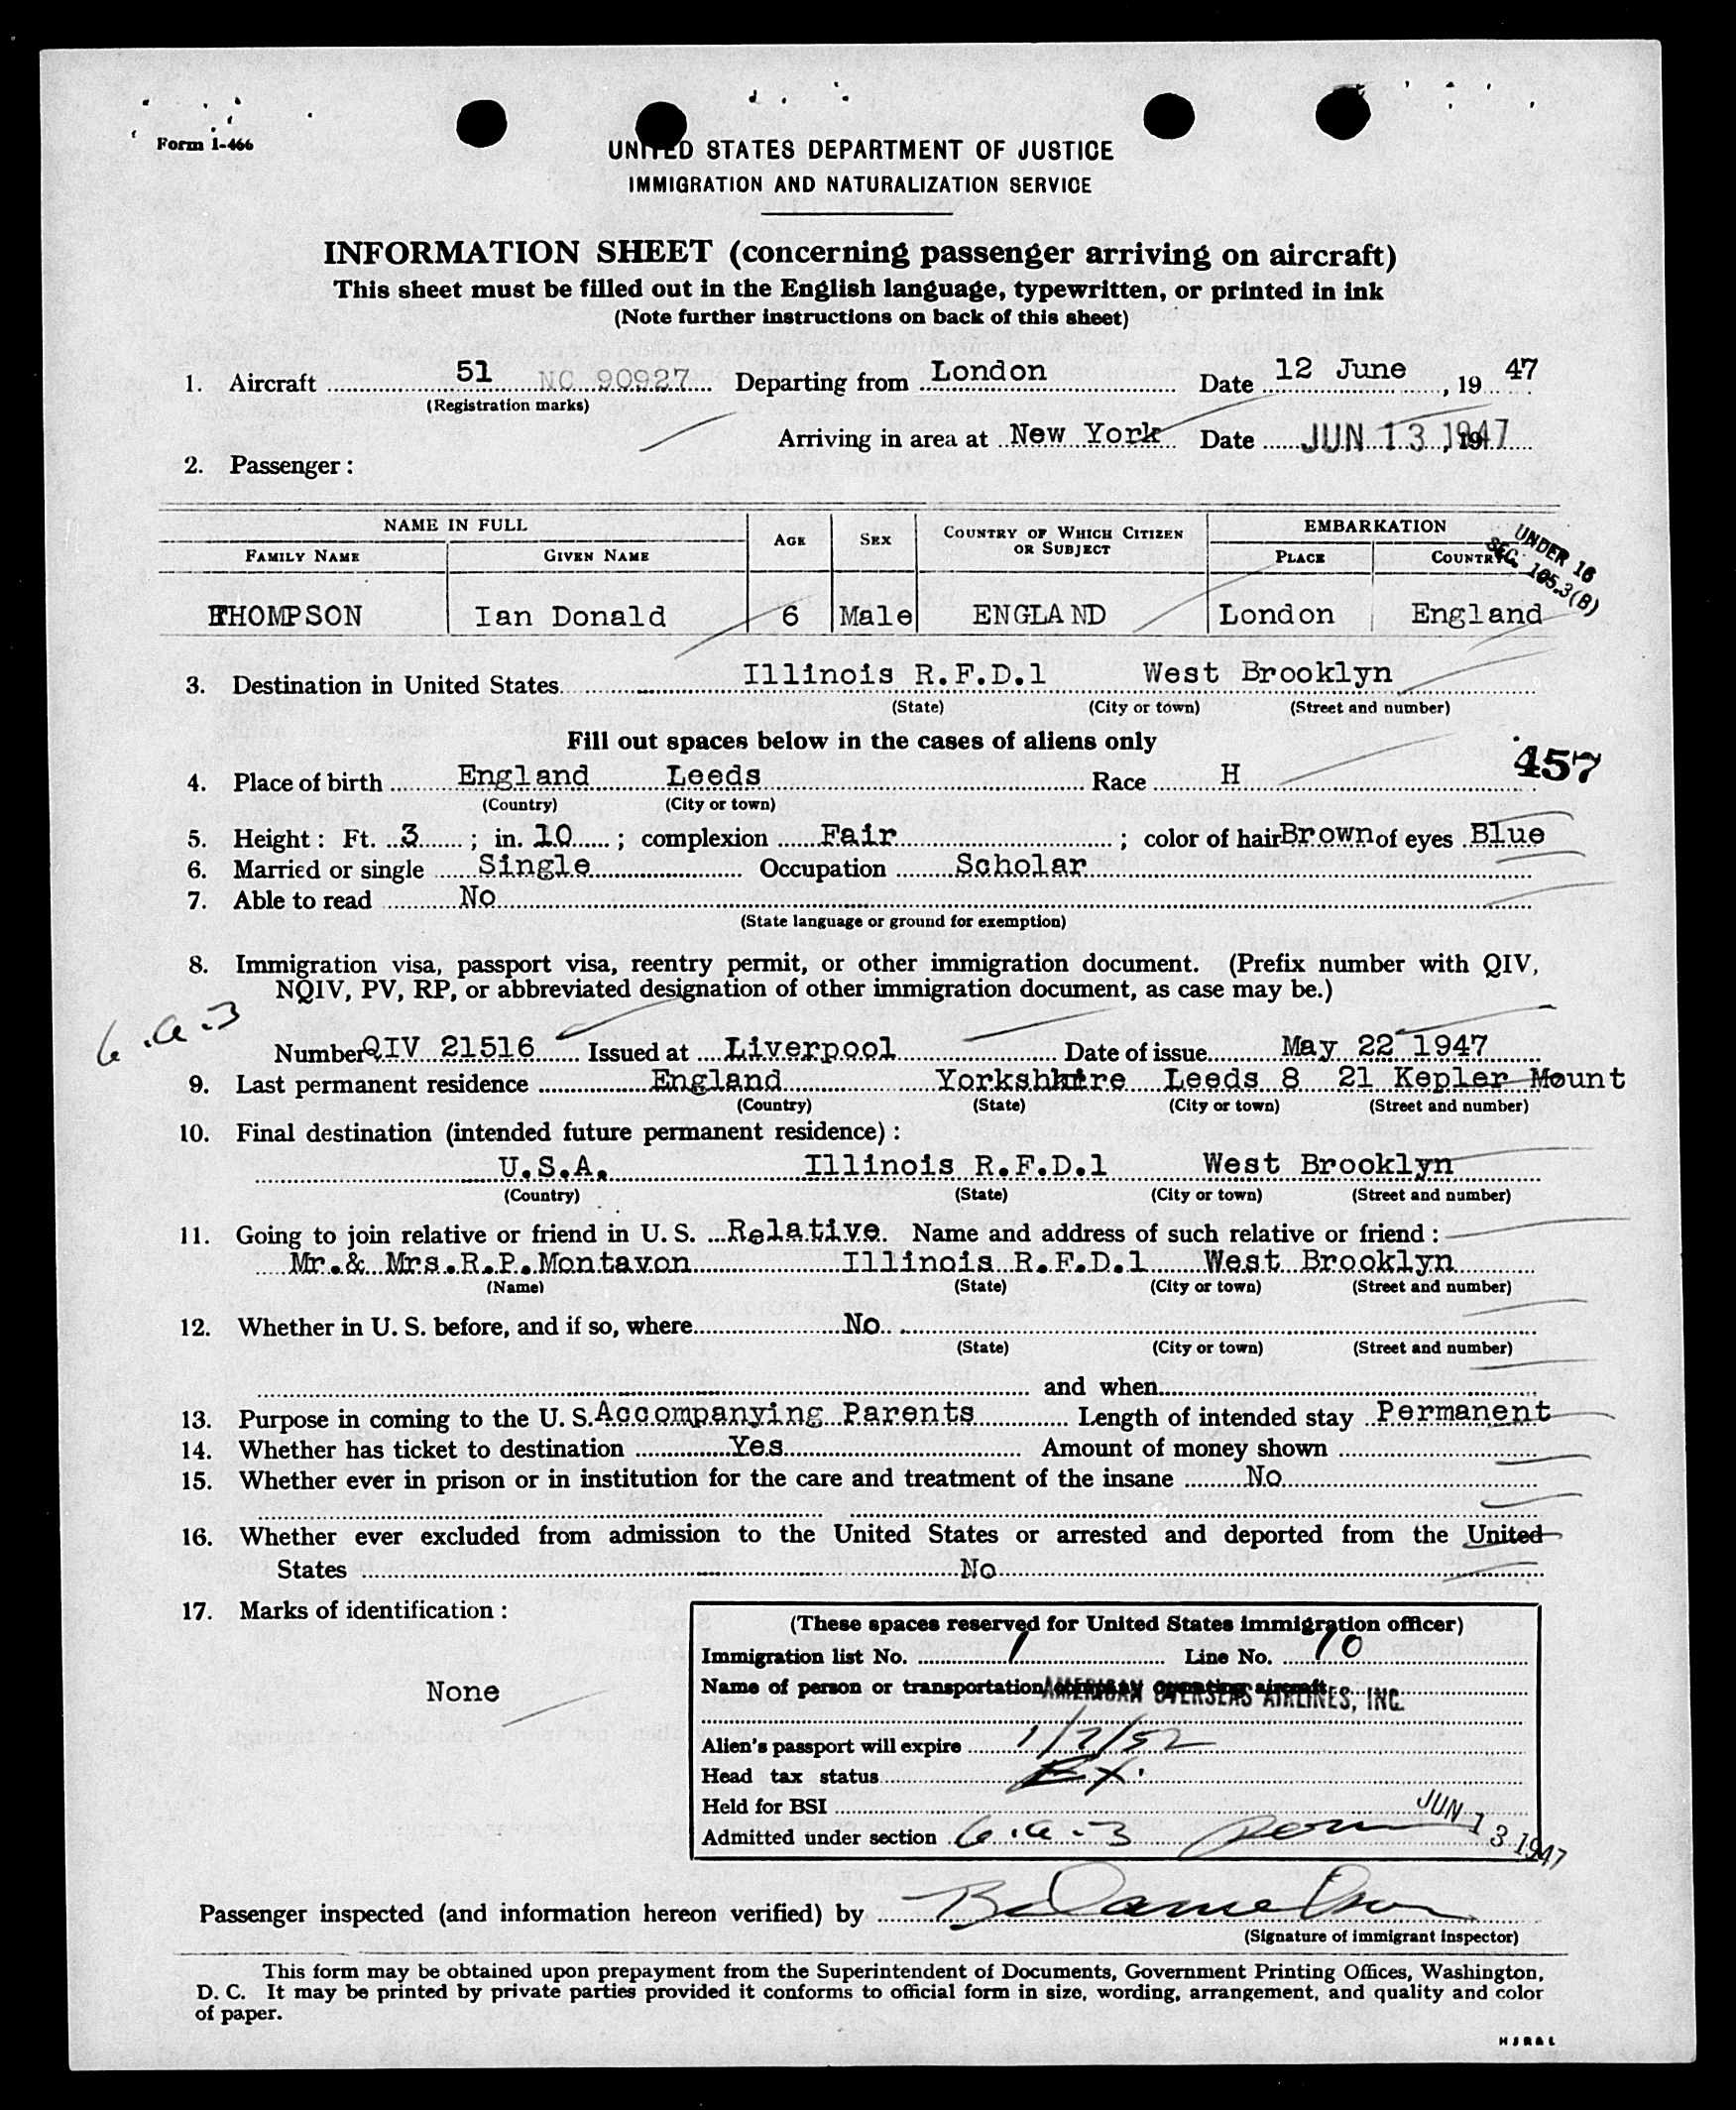 Form I-466
UNITED STATES DEPARTMENT OF JUSTICE
IMMIGRATION AND NATURALIZATION SERVICE
INFORMATION SHEET (concerning passenger arriving on aircraft)
This sheet must be filled out in the English language, typewritten, or printed in ink
(Note further instructions on back of this sheet)
1. Aircraft 51 NC 90927 Departing from London Date 12 June, 19 47
(Registration marks)
Arriving in area at New York Date JUN 13 1947
2. Passenger:
NAME IN FULL AGE SEX COUNTRY OF WHICH CITIZEN OR SUBJECT EMBARKATION
FAMILY NAME GIVEN NAME PLACE COUNTRY
UNDER 16
SEC. 105.3(B)
THOMPSON Ian Donald 6 Male ENGLAND London England
3. Destination in United States Illinois R.F.D.1 West Brooklyn
(State) (City or town) (Street and number)
Fill out spaces below in the cases of aliens only
457
4. Place of birth England Leeds Race H
(Country) (City or town)
5. Height: Ft. 3; in. 10; complexion Fair; color of hair Brown of eyes Blue
6. Married or single Single Occupation Scholar
7. Able to read No
(State language or ground for exemption)
8. Immigration visa, passport visa, reentry permit, or other immigration document. (Prefix number with QIV,
NQIV, PV, RP, or abbreviated designation of other immigration document, as case may be.)
6.a-3
Number QIV 21516 Issued at Liverpool Date of issue May 22 1947
9. Last permanent residence England Yorkshire Leeds 8 21 Kepler Mount
(Country) (State) (City or town) (Street and number)
10. Final destination (intended future permanent residence):
U.S.A. Illinois R.F.D.1 West Brooklyn
(Country) (State) (City or town) (Street and number)
11. Going to join relative or friend in U. S. Relative. Name and address of such relative or friend:
Mr.& Mrs.R.P.Montavon Illinois R.F.D.1 West Brooklyn
(Name) (State) (City or town) (Street and number)
12. Whether in U. S. before, and if so, where No
(State) (City or town) (Street and number)
and when
13. Purpose in coming to the U. S. Accompanying Parents Length of intended stay Permanent
14. Whether has ticket to destination Yes Amount of money shown
15. Whether ever in prison or in institution for the care and treatment of the insane No
16. Whether ever excluded from admission to the United States or arrested and deported from the United
States No
17. Marks of identification:
None
(These spaces reserved for United States immigration officer)
Immigration list No. 1 Line No. 10
Name of person or transportation company operating aircraft AMERICAN OVERSEAS AIRLINES, INC.
Alien's passport will expire 1/7/52
Head tax status Ex.
Held for BSI
Admitted under section 6.a-3 perm JUN 13 1947
Passenger inspected (and information hereon verified) by
(Signature of immigrant inspector)
This form may be obtained upon prepayment from the Superintendent of Documents, Government Printing Offices, Washington,
D. C. It may be printed by private parties provided it conforms to official form in size, wording, arrangement, and quality and color
of paper.